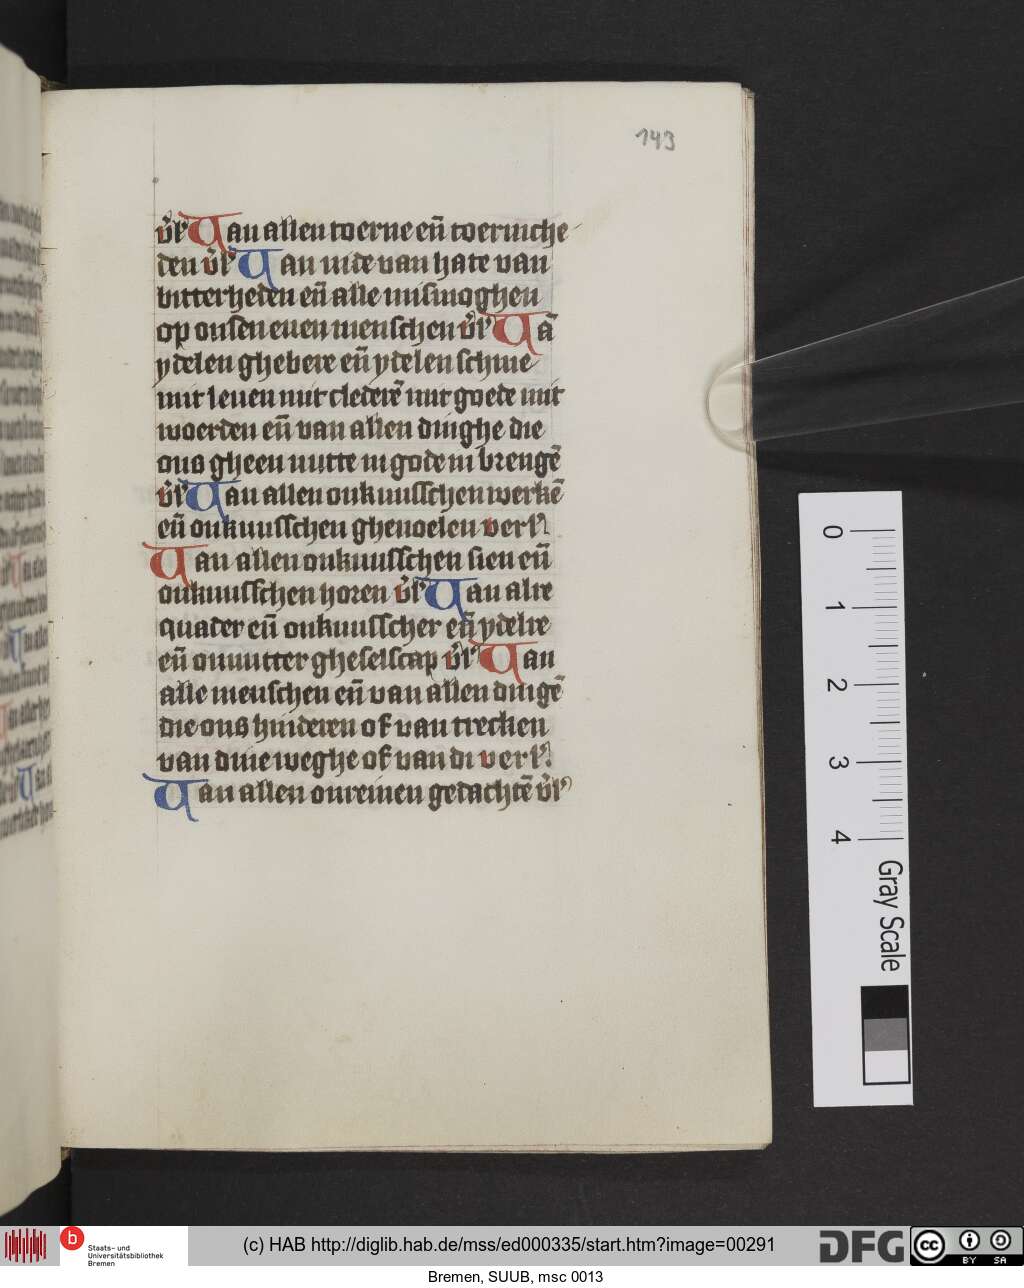 143
v̉lʼ Van allen toerne en̄ toerniche
den v̉lʼ Van nide van hate van
bitterheden en̄ alle misinoghen
op onsen euen menschen v̉lʼ Vā
ydelen ghebere en̄ ydelen schine
mit leuen mit clederē mit goede mit
woerden en̄ van allen dinghe die
ons gheen nutte in gode in brengē
v̉lʼ Van allen onkuusschen werkē
en̄ onkuusschen gheuoelen verlʼ
Van allen onkuusschen sien en̄
onkuusschen horen v̉lʼ Van alre
quader en̄ onkuusscher en̄ ydelre
en̄ onnutter gheselscap v̉lʼ Van
alle menschen en̄ van allen dingē
die ons hinderen of van trecken
van dinie weghe of van di verlʼ
Van allen onreinen gedachtē v̉lʼ
0
1
2
3
4
Gray Scale
b Staats- und
Universitätsbibliothek
Bremen
(c) HAB http://diglib.hab.de/mss/ed000335/start.htm?image=00291
DFG
cc BY SA
Bremen, SUUB, msc 0013